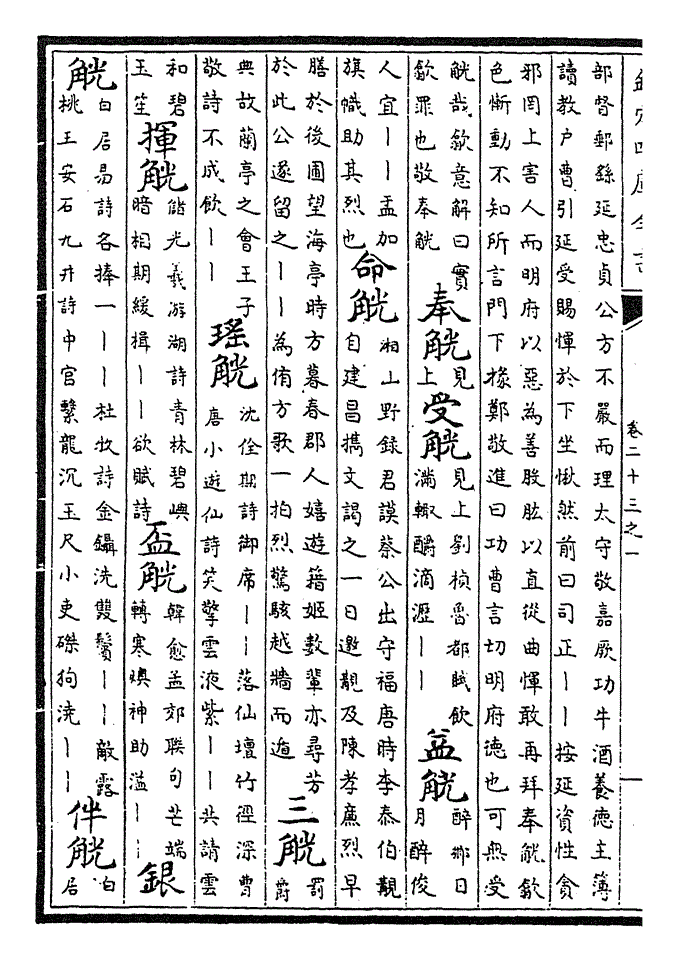 欽定四庫全書
卷二十三之一
部督郵繇延忠貞公方不嚴而理太守敬嘉厥功牛酒養德主簿
讀教户曹引延受賜惲於下坐愀然前曰司正——按延資性貪
邪罔上害人而明府以惡為善股肱以直從曲惲敢再拜奉觥歙
色慚動不知所言門下掾鄭敬進曰功曹言切明府德也可無受
觥哉歙意解曰實
歙罪也敬奉觥
奉觥
見
上
受觥
見上劉楨魯都賦飲
滿輒釂滴瀝——
益觥
醉鄉日
月醉俊
人宜——盂加
旗幟助其烈也
命觥
湘山野錄君謨蔡公出守福唐時李泰伯覯
自建昌攜文謁之一日邀覯及陳孝廉烈早
膳於後圃望海亭時方暮春郡人嬉遊籍姬數輩亦尋芳
於此公遂留之——為侑方歌一拍烈驚駭越牆而遁
三觥
罰
爵
典故蘭亭之會王子
敬詩不成飲——
瑤觥
沈佺期詩御席——落仙壇竹徑深曹
唐小遊仙詩笑擎雲液紫——共請雲
和碧
玉笙
揮觥
儲光羲游湖詩青林碧嶼
暗相期緩揖——欲賦詩
盃觥
韓愈孟郊聯句芒端
轉寒燠神助溢——
銀
觥
白居易詩各捧一——杜牧詩金鑷洗雙鬢——敵露
桃王安石九井詩中官繫龍沉玉尺小吏磔狗澆——
伴觥
白
居